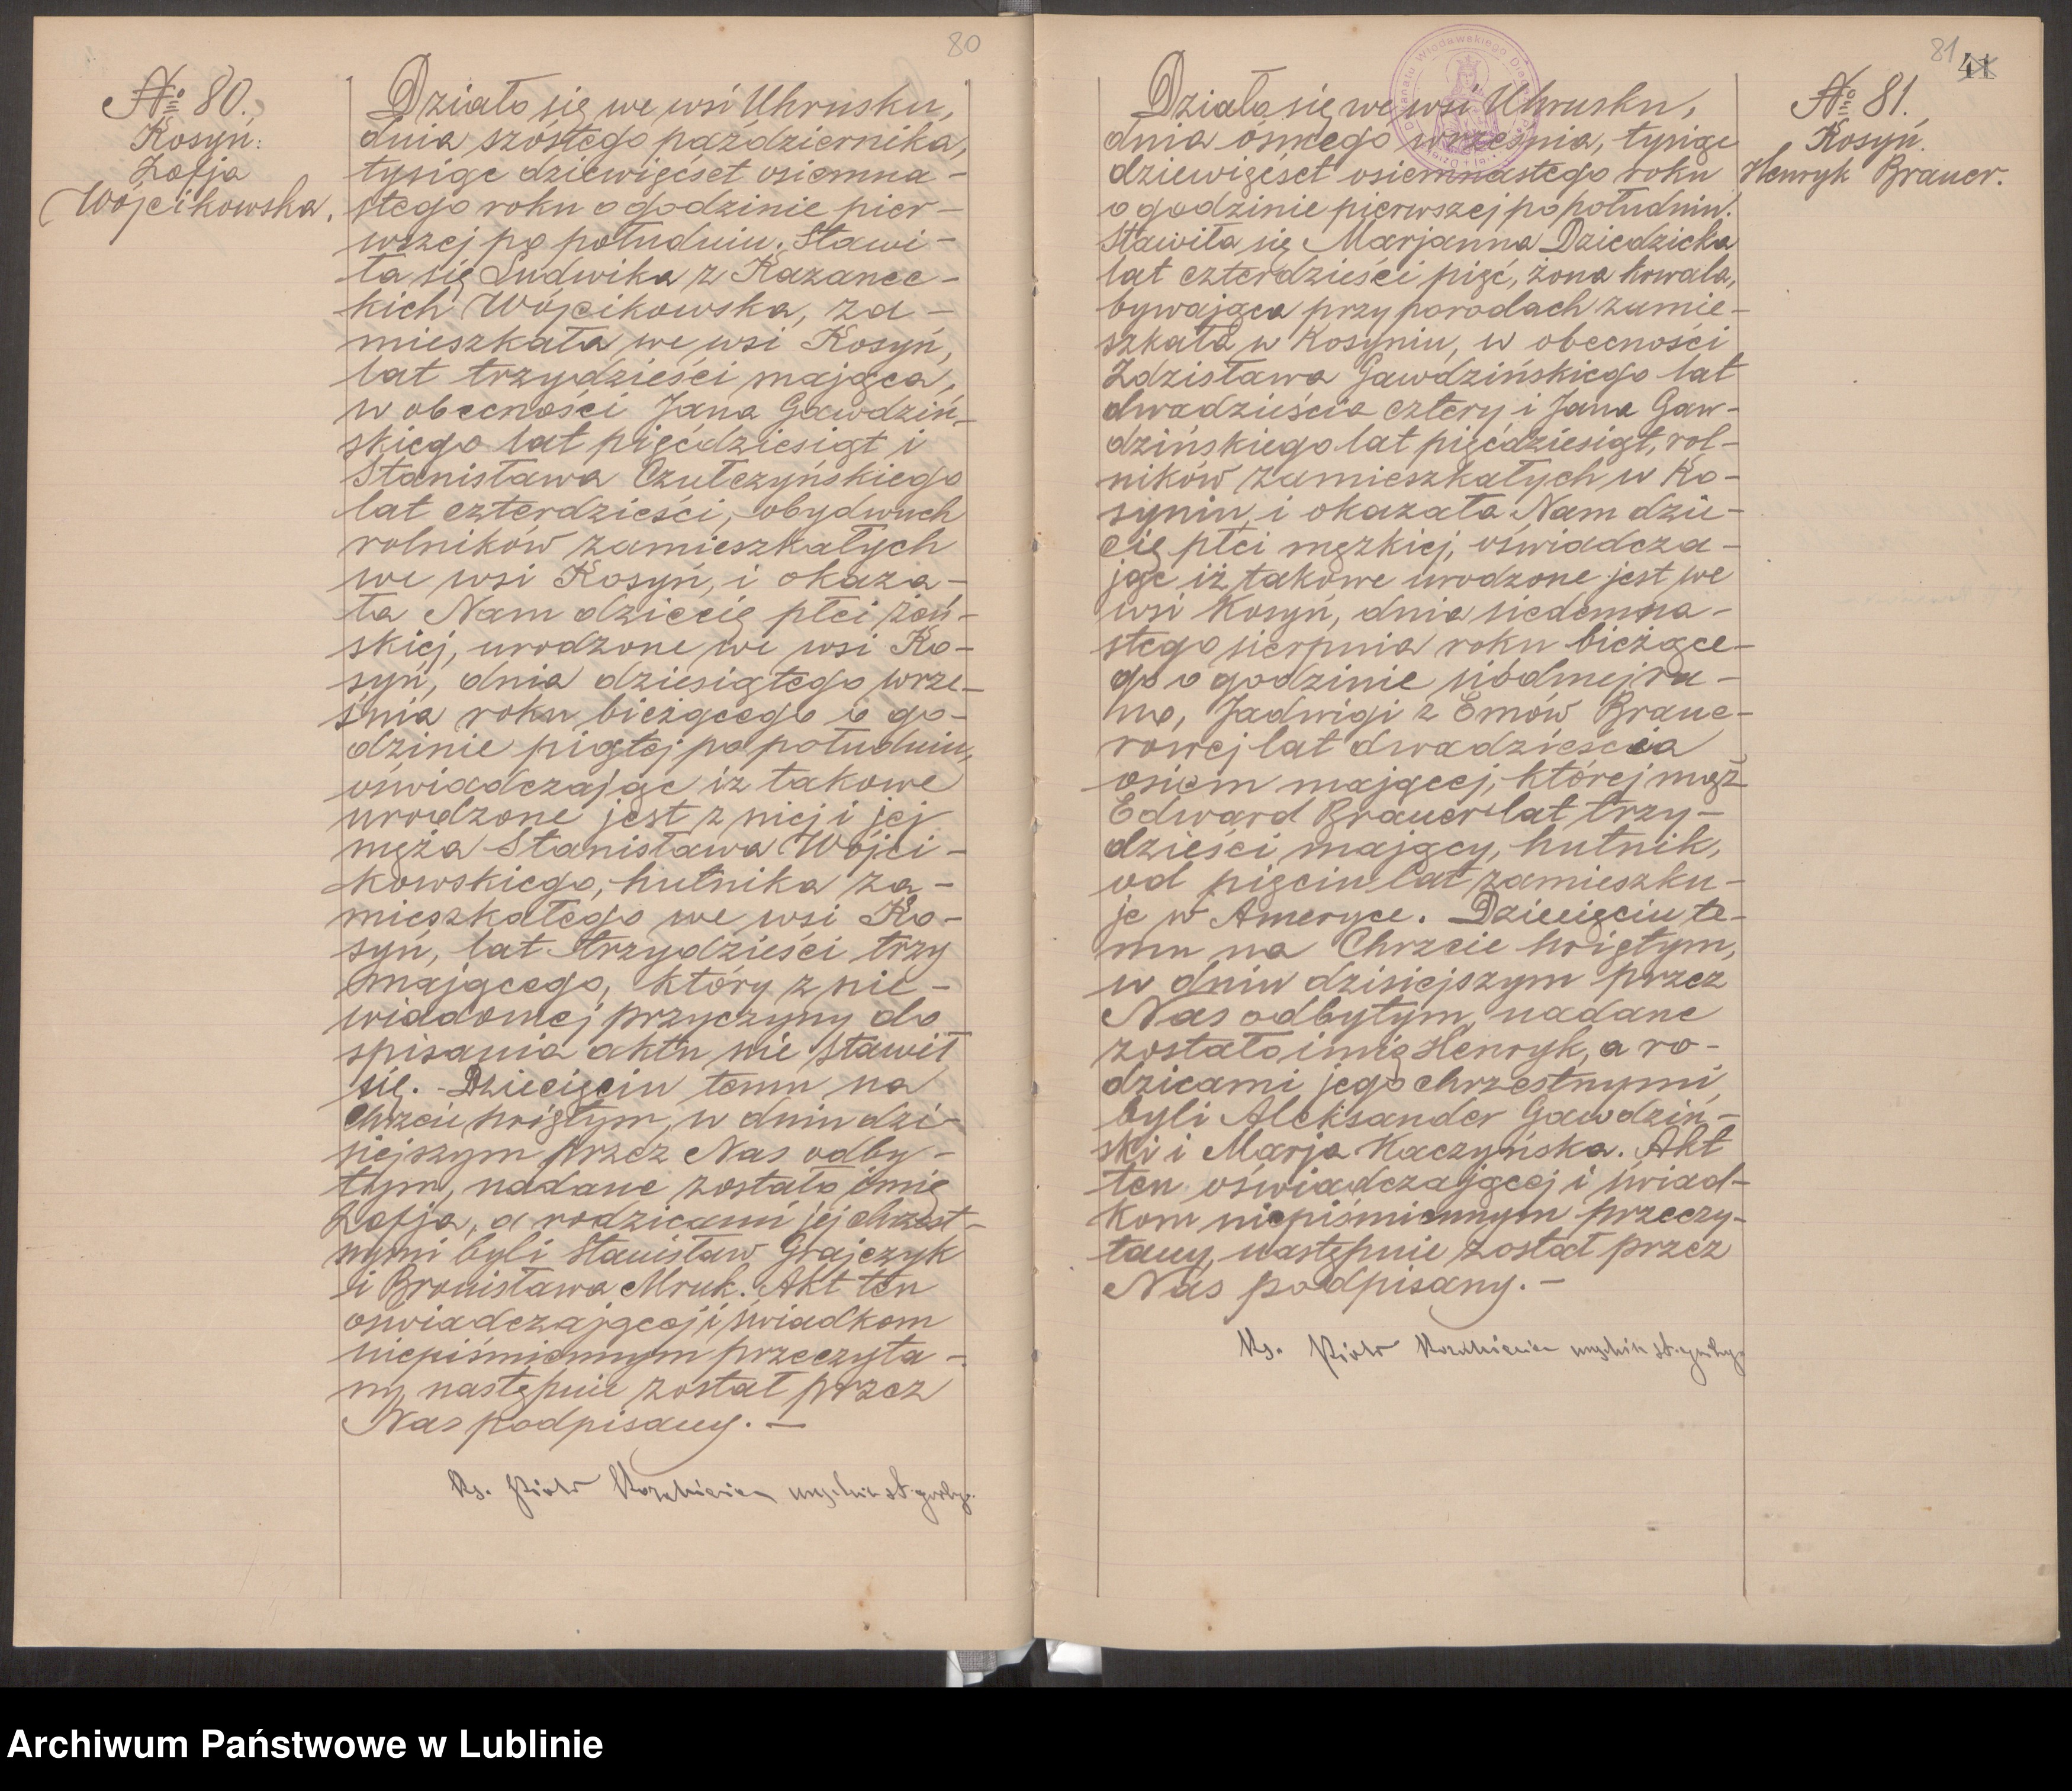 80
№ 80.
Kosyń.
Zofja
Wójcikowska.
Działo się we wsi Uhrusku,
dnia szóstego października,
tysiąc dziewięćset osiemna-
stego roku o godzinie pier-
wszej po południu. Stawi-
ła się Ludwika z Kazanec-
kich Wójcikowska, za-
mieszkała we wsi Kosyń,
lat trzydzieści mająca,
w obecności Jana Gawdziń-
skiego lat pięćdziesiąt i
Stanisława Czułczyńskiego
lat czterdzieści, obydwuch
rolników zamieszkałych
we wsi Kosyń, i okaza-
ła Nam dziecię płci żeń-
skiej, urodzone we wsi Ko-
syń, dnia dziesiątego wrze-
śnia roku bieżącego o go-
dzinie piątej po południu,
oświadczając iż takowe
urodzone jest z niej i jej
męża Stanisława Wójci-
kowskiego, hutnika za-
mieszkałego we wsi Ko-
syń, lat trzydzieści trzy
mającego, który z nie-
wiadomej przyczyny do
spisania aktu nie stawił
się. - Dziecięciu temu na
chrzcie świętym, w dniu dzi-
siejszym przez Nas odby-
tym, nadane zostało imię
Zofja, a rodzicami jej chrzest-
nymi byli Stanisław Grajczyk
i Bronisława Mruk. Akt ten
oświadczającej i świadkom
niepiśmiennym przeczyta-
ny, następnie został przez
Nas podpisany. —
Ks. Piotr
81 41
№ 81.
Kosyń.
Henryk Brauer.
Działo się we wsi Uhrusku,
dnia ósmego września, tysiąc
dziewięćset osiemnastego roku
o godzinie pierwszej po południu.
Stawiła się Marjanna Dziedzicka
lat czterdzieści pięć, żona kowala,
bywająca przy porodach zamie-
szkała w Kosyniu, w obecności
Zdzisława Gawdzińskiego lat
dwadzieścia cztery i Jana Gaw-
dzińskiego lat pięćdziesiąt, rol-
ników zamieszkałych w Ko-
syniu, i okazała Nam dzie-
cię płci męzkiej, oświadcza-
jąc iż takowe urodzone jest we
wsi Kosyń, dnia siedemna-
stego sierpnia roku bieżące-
go o godzinie siódmej ra-
no, Jadwigi z Emów Braue-
rowej lat dwadzieścia
osiem mającej, której mąż
Edward Brauer lat trzy-
dzieści mający, hutnik,
od pięciu lat zamieszku-
je w Ameryce. Dziecięciu te-
mu na Chrzcie świętym,
w dniu dzisiejszym przez
Nas odbytym, nadane
zostało imię Henryk, a ro-
dzicami jego chrzestnymi
byli Aleksander Gawdziń-
ski i Marja Kaczyńska. Akt
ten oświadczającej i świad-
kom niepiśmiennym przeczy-
tany, następnie został przez
Nas podpisany. —
Ks. Piotr
Archiwum Państwowe w Lublinie